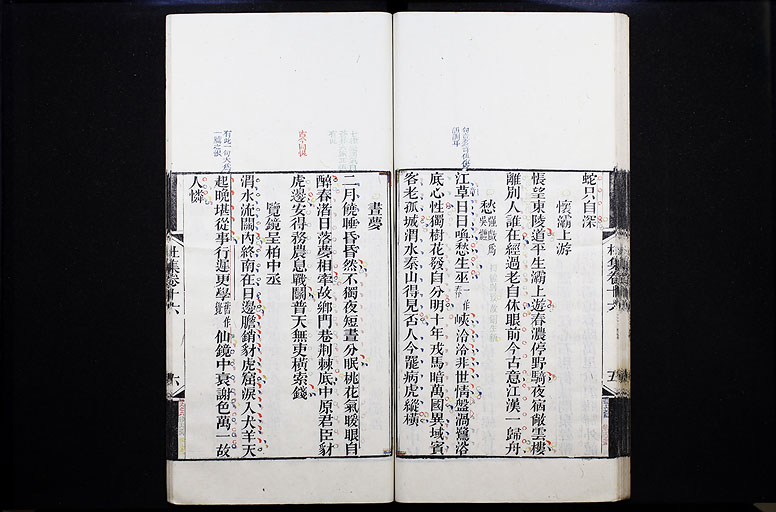 蛇只自深
懷灞上游
悵望東陵道平生灞上遊春濃停野騎夜宿敞雲樓
離別人誰在經過老自休眼前今古意江漢一歸舟
愁
江草日日喚愁生巫峽泠泠非世情盤渦鷺浴
底心性獨樹花發自分明十年戎馬暗萬國異域賓
客老孤城渭水秦山得見否人今罷病虎縱橫
杜集卷十六
五
晝夢
二月饒睡昏昏然不獨夜短晝分眠桃花氣暖眼自
醉春渚日落夢相牽故鄉門巷荊棘底中原君臣豺
虎邊安得務農息戰鬭普天無吏橫索錢
覽鏡呈柏中丞
渭水流關內終南在日邊膽銷豺虎窟淚入犬羊天
起晚堪從事行遲更學仙鏡中衰謝色萬一故
人憐
杜集卷十六
六